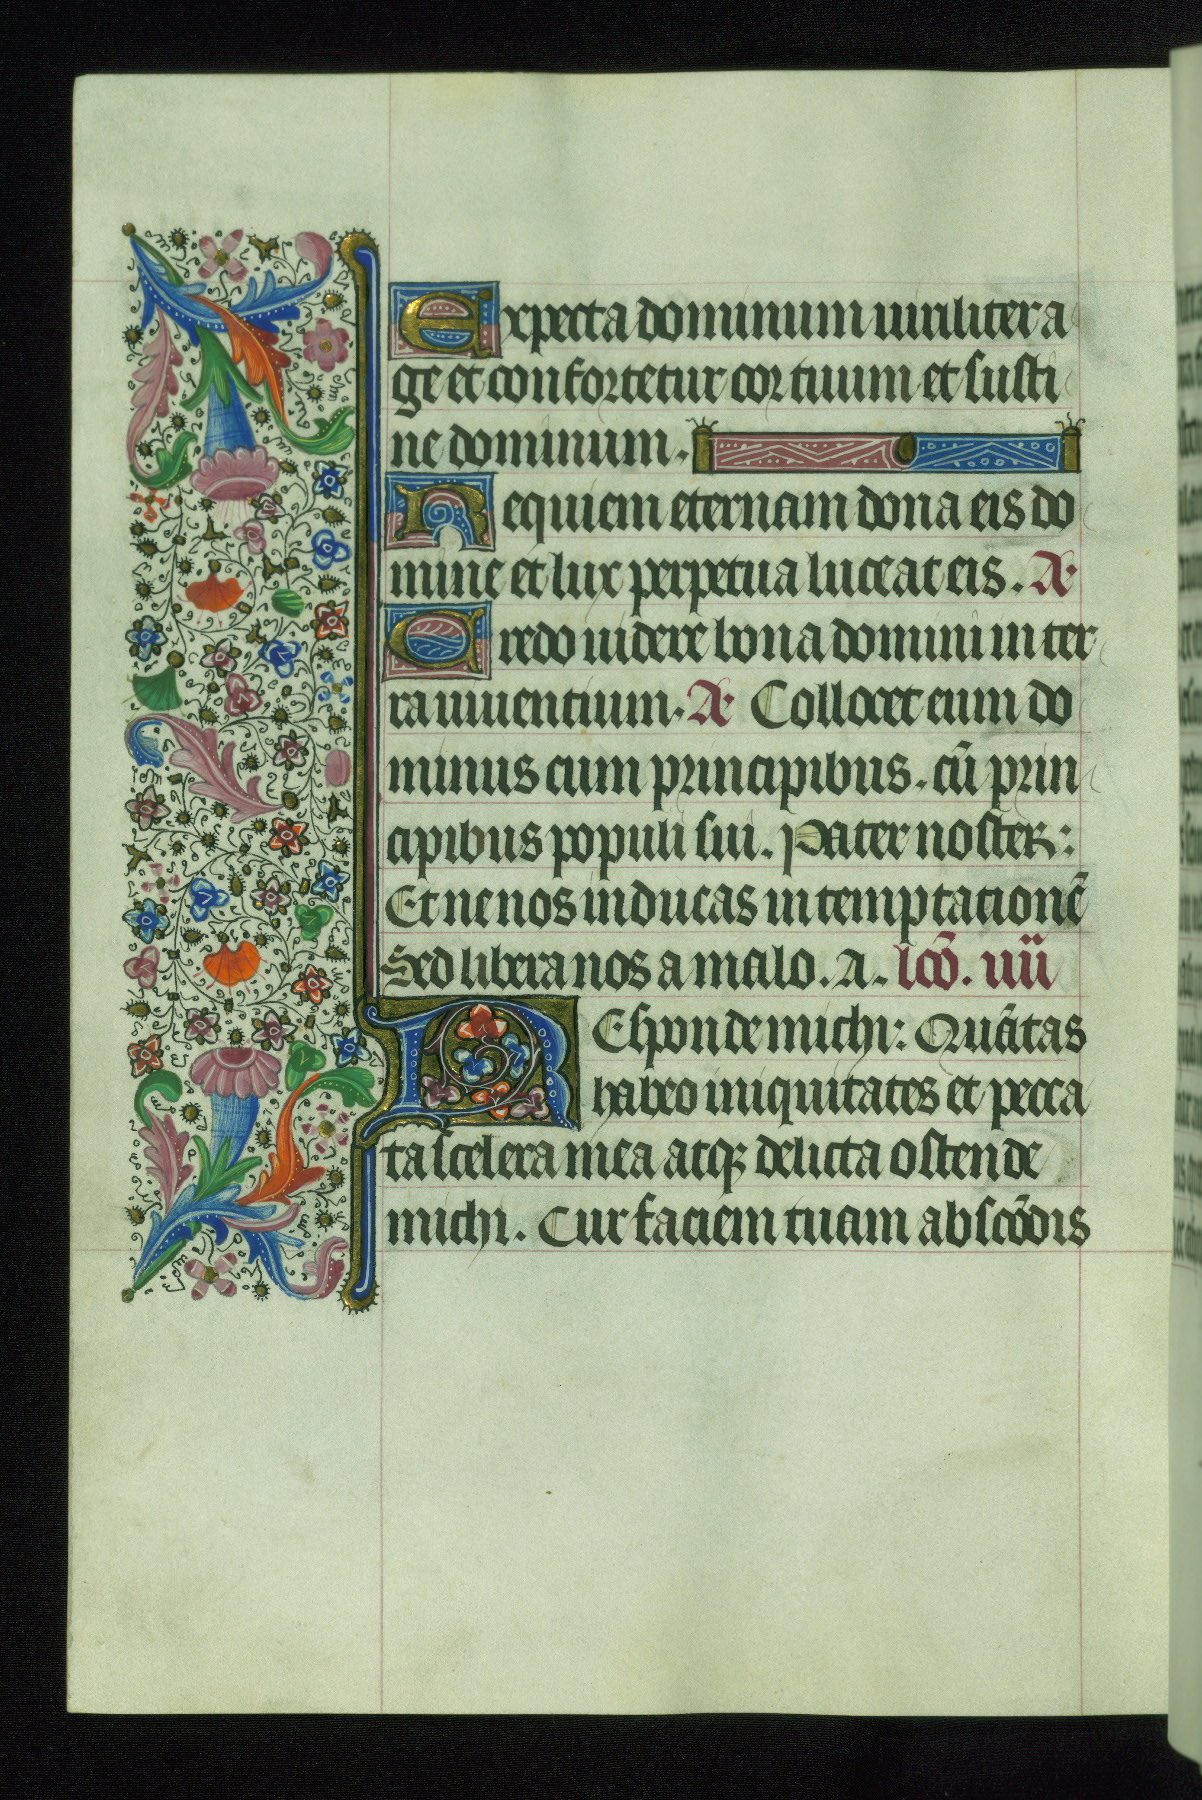 Expecta dominum uiriliter a
ge et confortetur cor tuum et susti
ne dominum.
Requiem eternam dona eis do
mine et lux perpetua luceat eis. A
Credo uidere bona domini in ter
ra uiuentium. A Collocet eum do
minus cum principibus. cū prin
cipibus populi sui. Pater noster:
Et ne nos inducas in temptationē
Sed libera nos a malo. A. lcō. iiii
REsponde michi: Quātas
habeo iniquitates et pecca
ta scelera mea atqꝫ delicta ostende
michi. Cur faciem tuam abscōdis